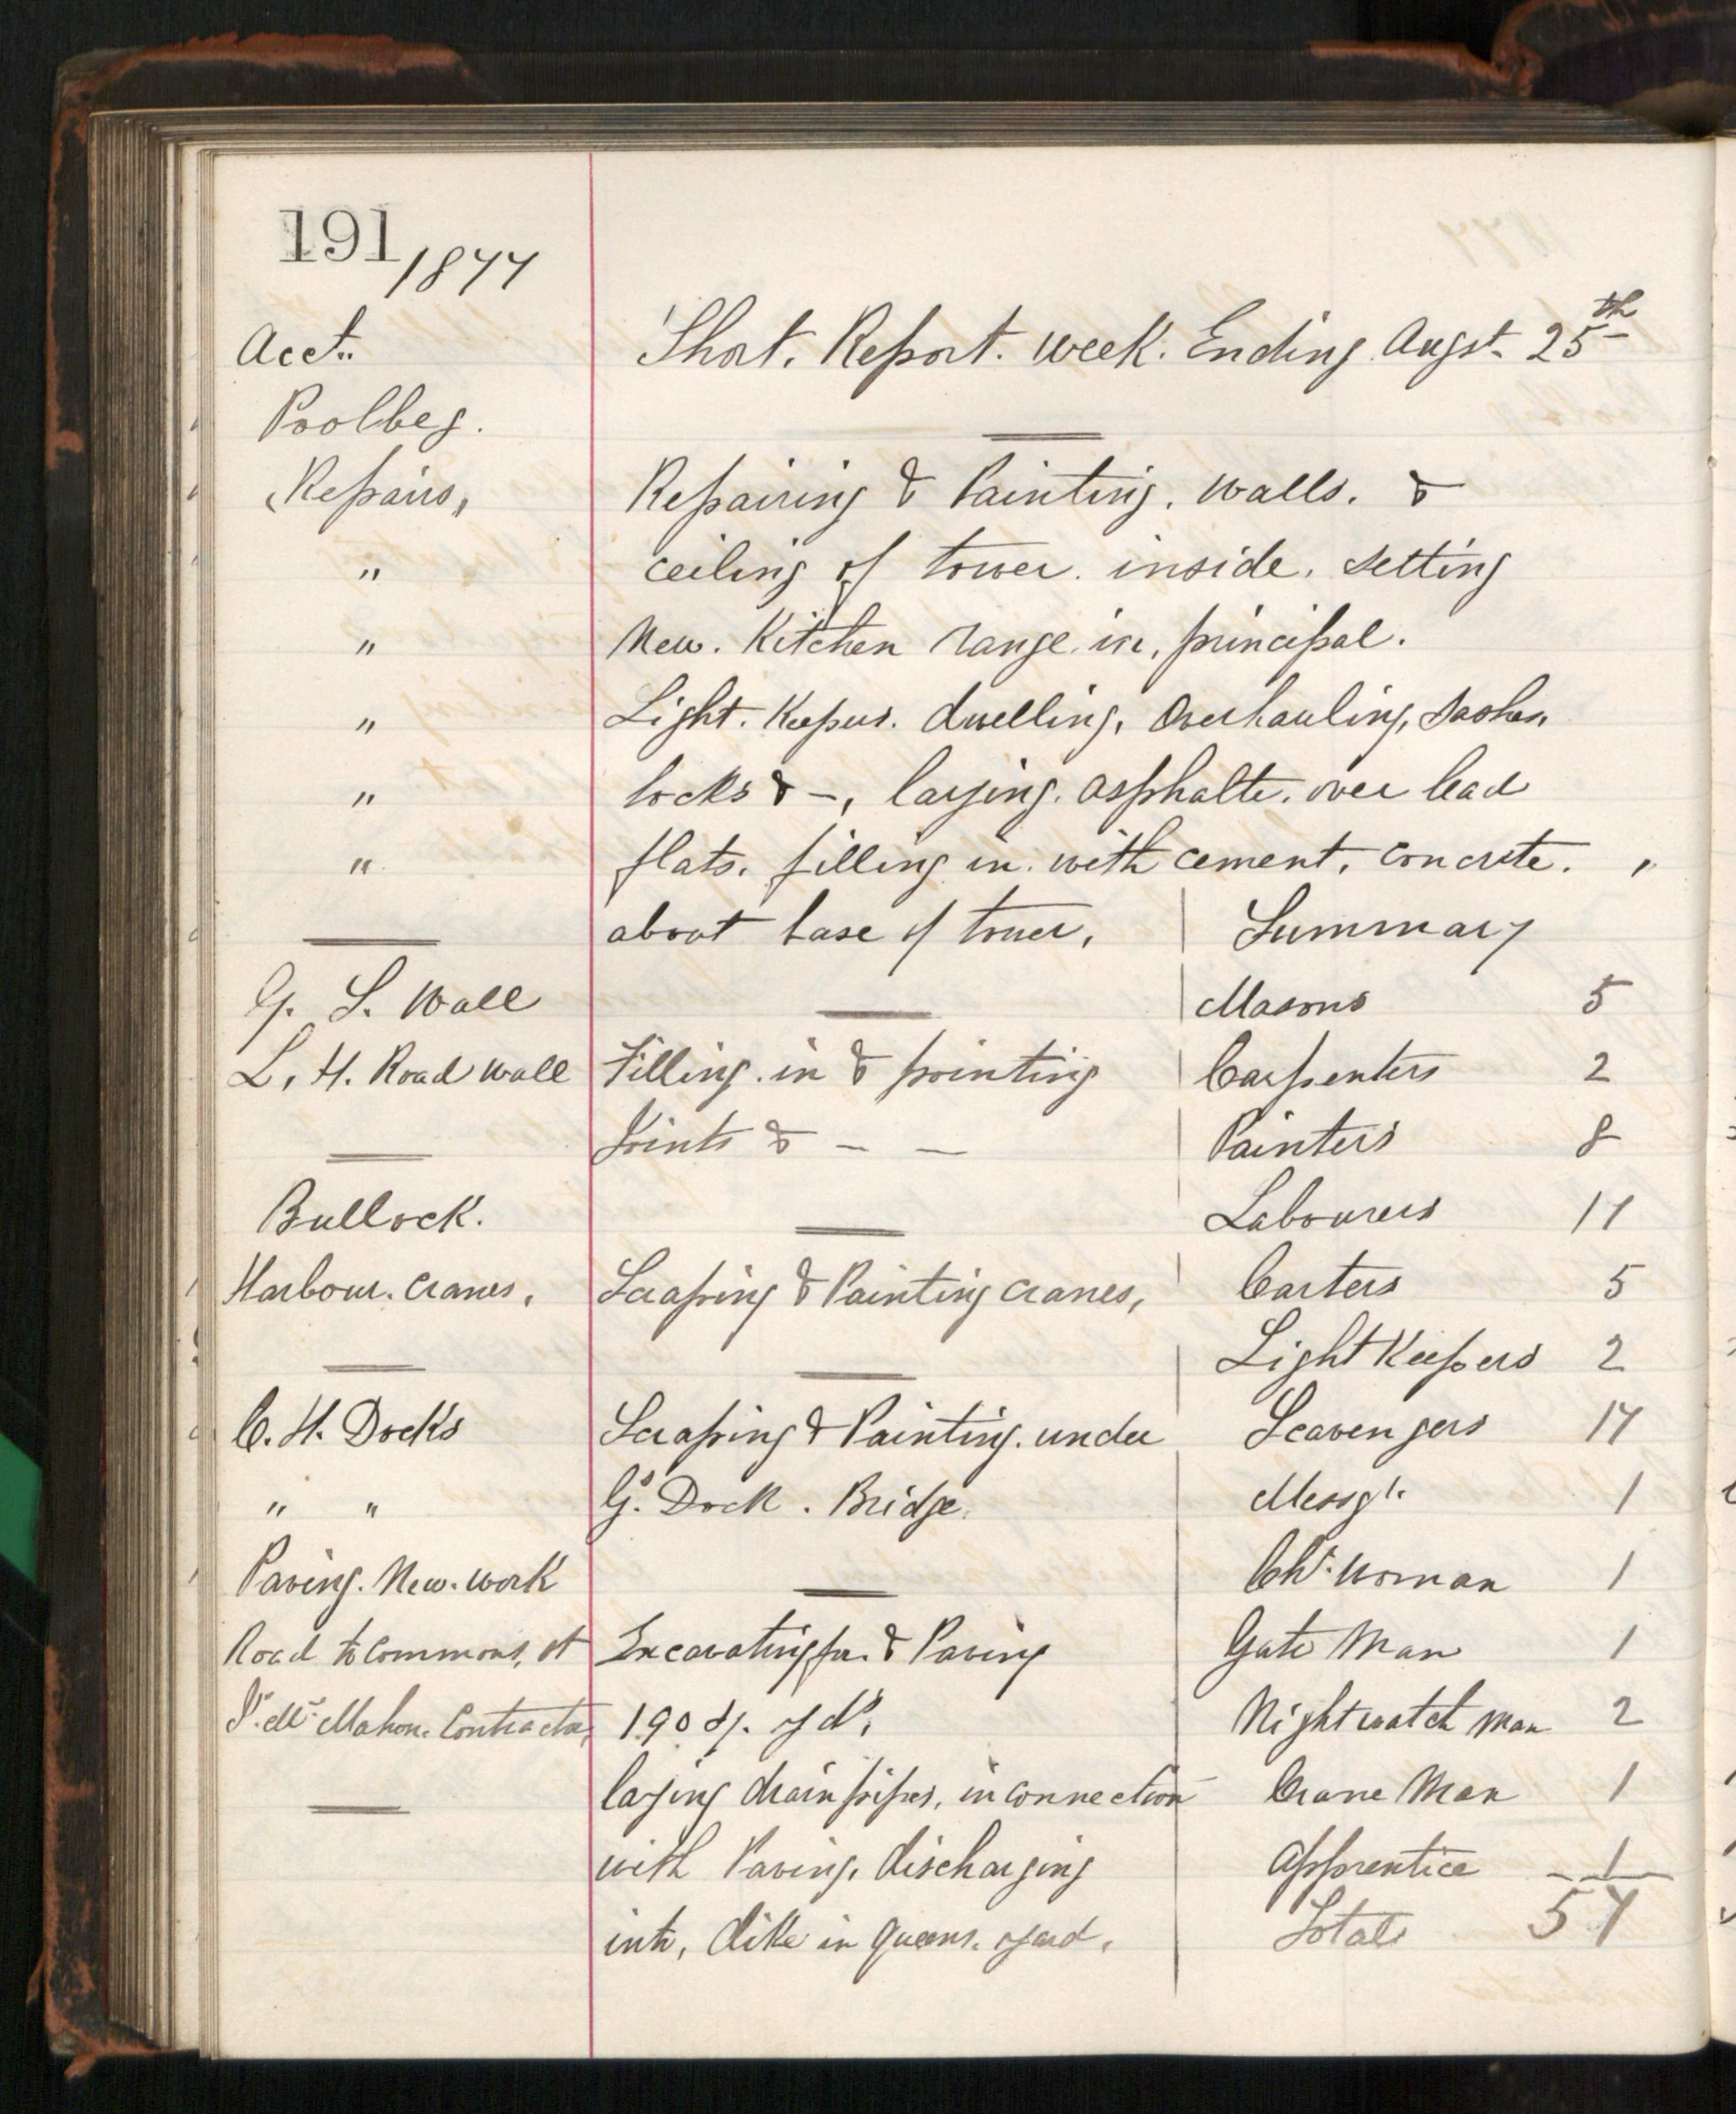 191 1877
Acct. Short. Report. week. Ending Augst. 25th
Poolbeg.
Repairs, Repairing & Painting. walls. &
" ceiling of tower. inside. setting
" New. Kitchen range in, principal.
" Light. Keepers. dwelling, Overhauling, sashes,
" locks & -, laying. asphalte. over lead
" flats. filling in. with cement, concrete.
about base of tower, Summary
G. S. Wall Masons 5
L. H. Road wall Filling in & pointing Carpenters 2
Joints & - - Painters 8
Bullock. Labourers 11
Harbour. Cranes, Scraping & Painting cranes, Carters 5
Light Keepers 2
C. H. Docks Scraping & Painting. under Scavengers 17
" " Gs. Dock. Bridge. Messgr. 1
Paving. New. Work Chr. Woman 1
Road to Commons, St Excavating for. & Paving Gate Man 1
P. Mc Mahon. Contractor, 190 sq. yds, Night watch man 2
laying drain pipes, in connection Crane Man 1
with Paving, discharging Apprentice 1
into, dike in Queens. yard. Total 57